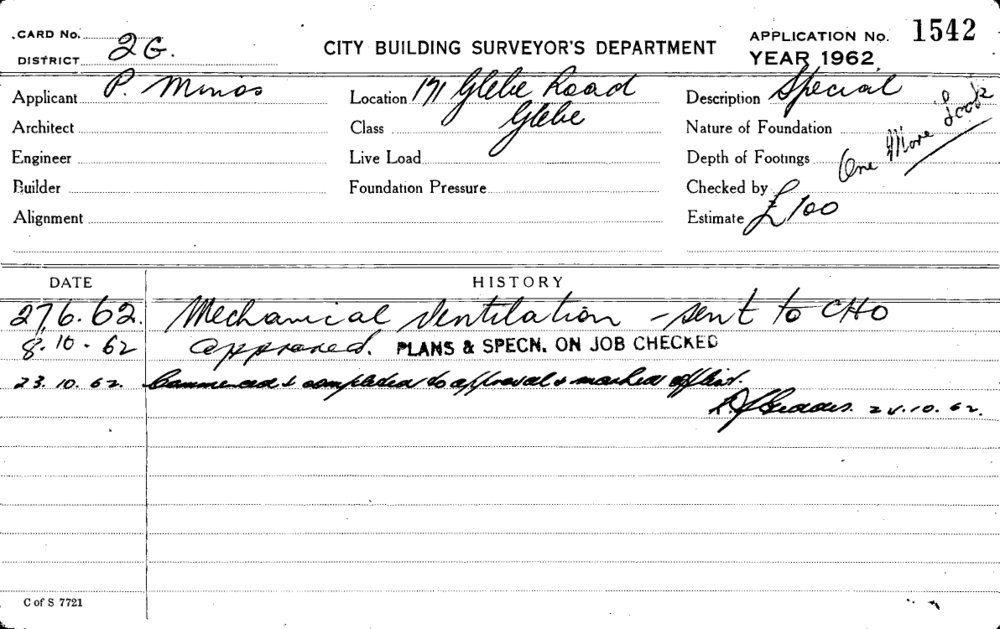 CARD No. 2G.
DISTRICT
CITY BUILDING SURVEYOR'S DEPARTMENT
APPLICATION No. 1542
YEAR 1962
Applicant P. Minos
Location 171 Glebe Road
Description Special
Architect
Class Glebe
Nature of Foundation
One More Look
Engineer
Live Load
Depth of Footings
Builder
Foundation Pressure
Checked by
Alignment
Estimate £100
DATE HISTORY
27.6.62. Mechanical Ventilation - sent to CHO
8.10.62 approved. PLANS & SPECN. ON JOB CHECKED
23.10.62. Commenced & completed to approval & marked off list.
24.10.62.
C of S 7721